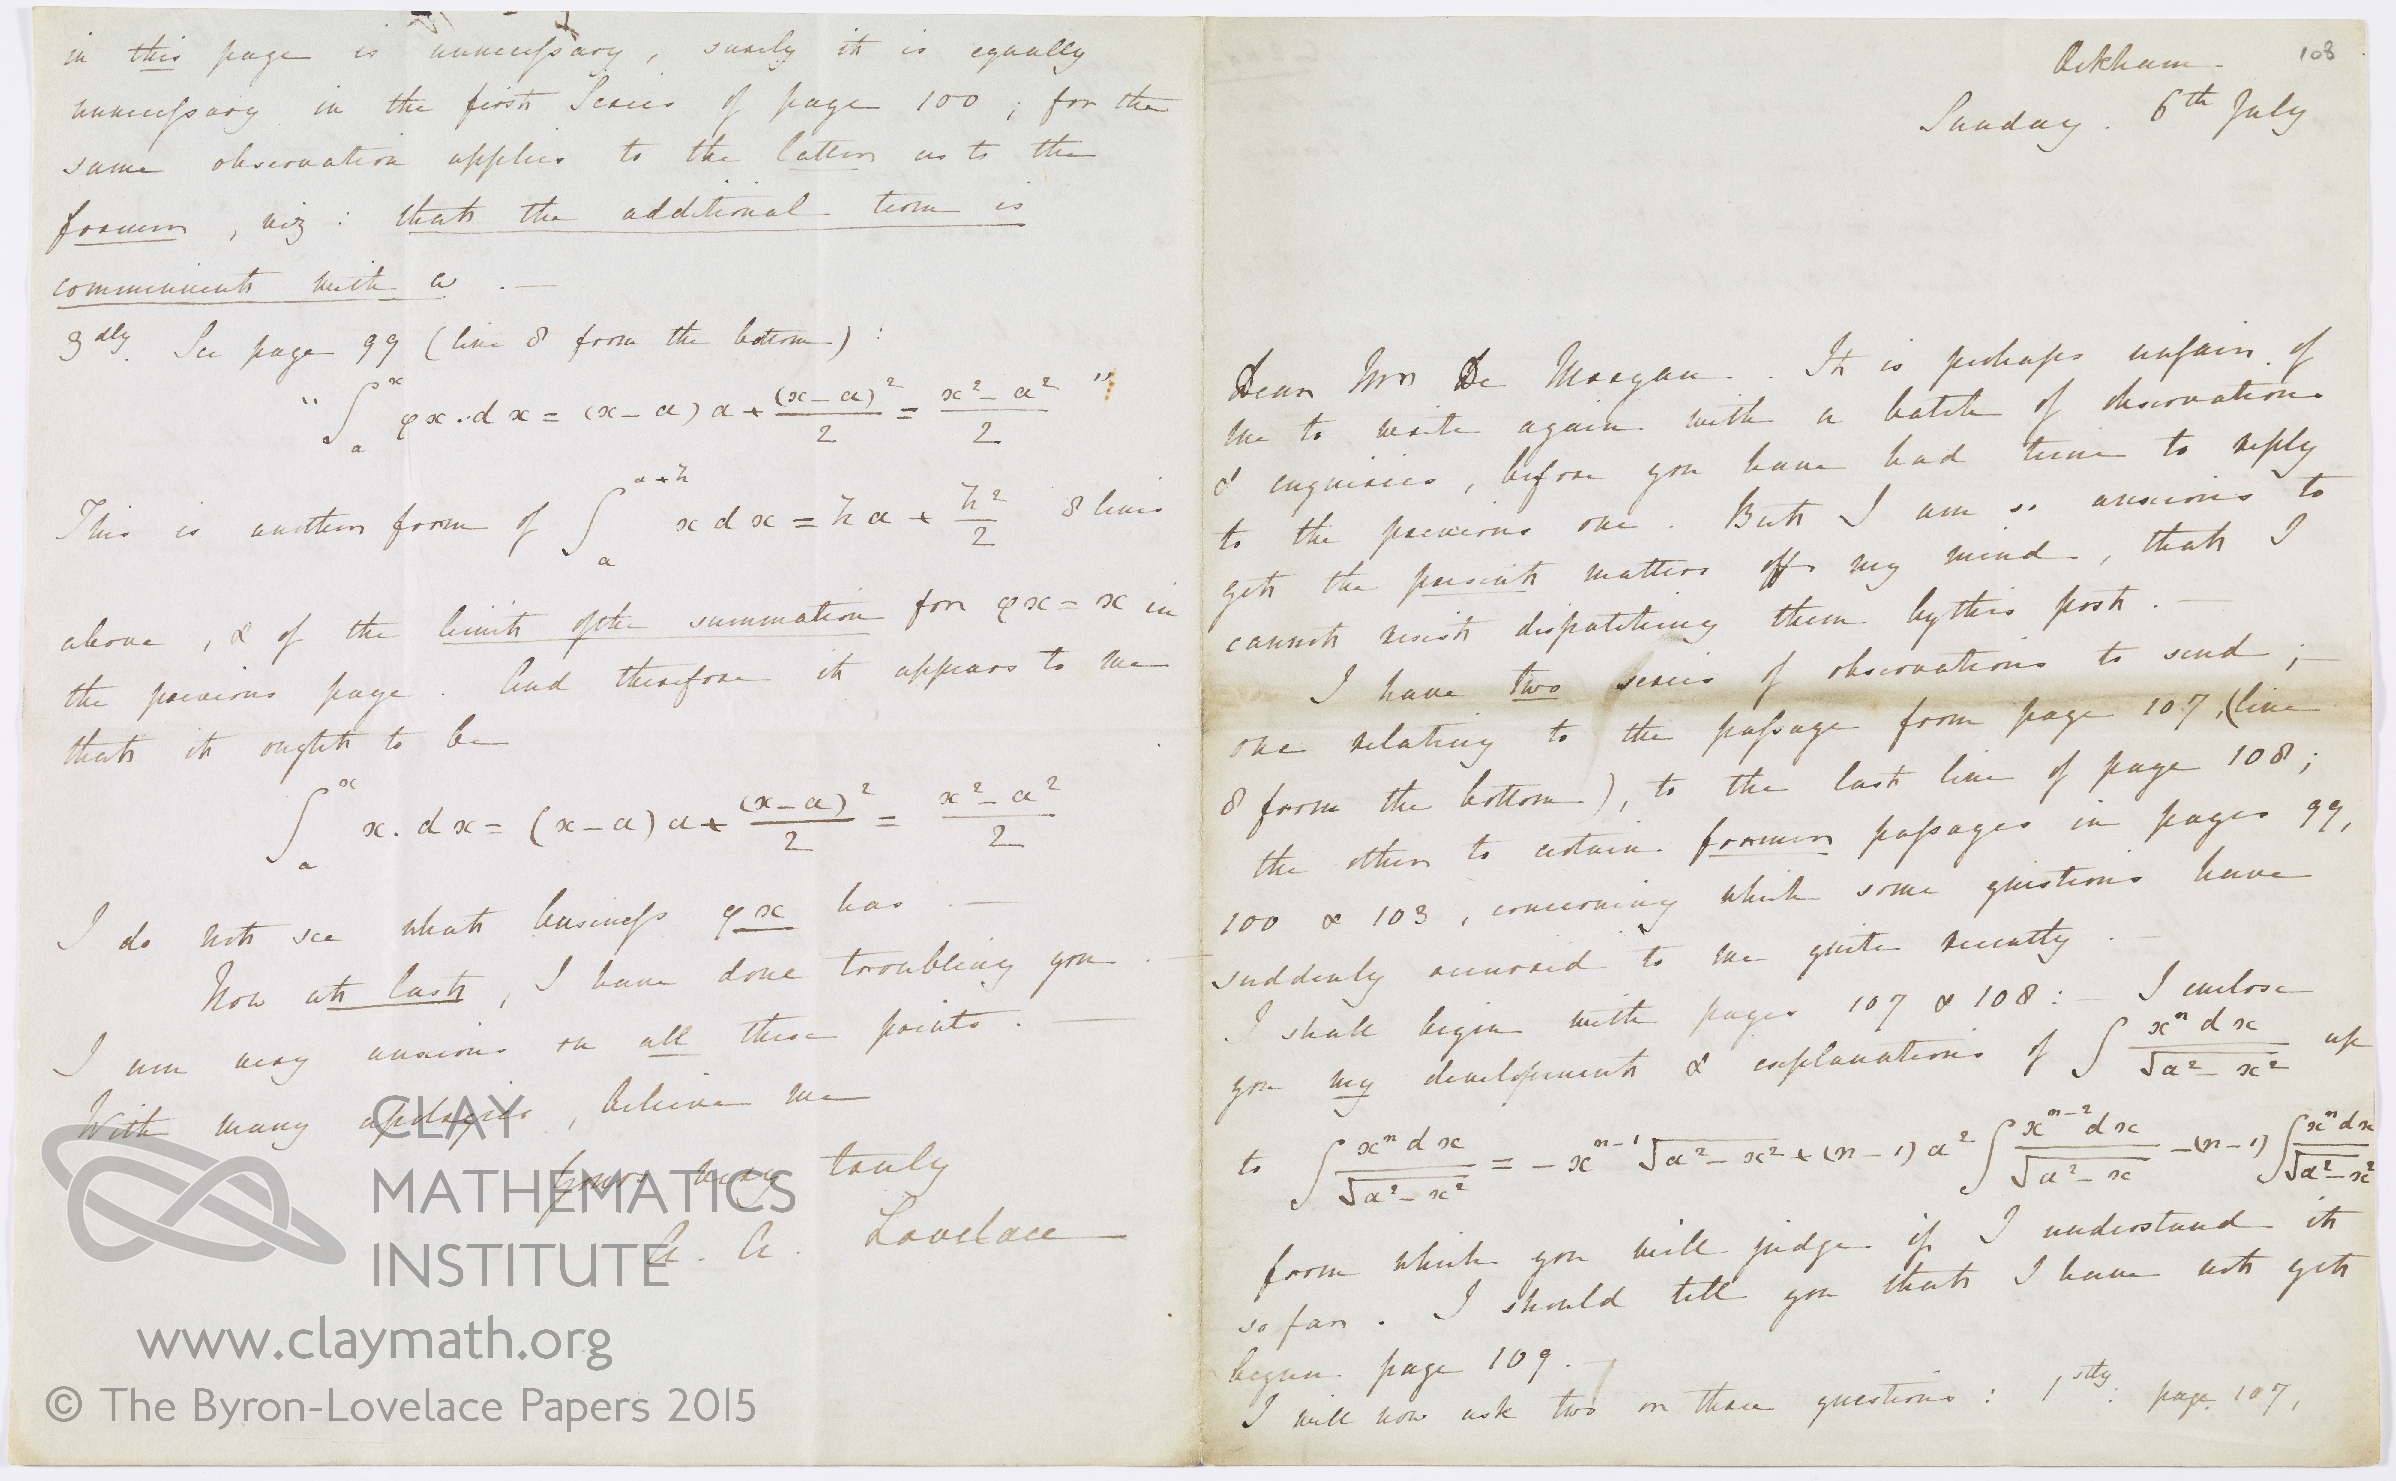 in this page is unnecessary, surely it is equally
unnecessary in the first Series of page 100; for the
same observation applies to the latter as to the
former, viz: that the additional term is
comminuent with a. —
3dly. See page 99 (line 8 from the bottom):
"∫ₐˣ φx.dx = (x-a)a + (x-a)²/2 = (x²-a²)/2"
This is another form of ∫ₐᵃ⁺ʰ x dx = ha + h²/2 8 lines
above, & of the limit of the summation for φx = x in
the previous page. And therefore it appears to me
that it ought to be
∫ₐˣ x.dx = (x-a)a + (x-a)²/2 = (x²-a²)/2
I do not see what business φx has. —
Now at last, I have done troubling you. —
I am very anxious on all these points. —
With many apologies, believe me
Yours very truly
A. A. Lovelace
CLAY
MATHEMATICS
INSTITUTE
www.claymath.org
© The Byron-Lovelace Papers 2015
108
Ockham
Sunday. 6th July
Dear Mr De Morgan. It is perhaps unfair of
me to write again with a batch of observations
& enquiries, before you have had time to reply
to the previous one. But I am so anxious to
get the present matters off my mind, that I
cannot resist dispatching them by this post. —
I have two series of observations to send; —
one relating to the passage from page 107, (line
8 from the bottom), to the last line of page 108;
the other to certain former passages in pages 99,
100 & 103, concerning which some questions have
suddenly occurred to me quite recently. —
I shall begin with pages 107 & 108: — I enclose
you my development & explanations of ∫ xⁿdx/√(a²-x²) up
to ∫ xⁿdx/√(a²-x²) = -xⁿ⁻¹√(a²-x²) + (n-1)a² ∫ xⁿ⁻²dx/√(a²-x) - (n-1) ∫ xⁿdx/√(a²-x²)
from which you will judge if I understand it
so far. I should tell you that I have not yet
begun page 109. —
I will now ask two or three questions: 1stly: page 107,